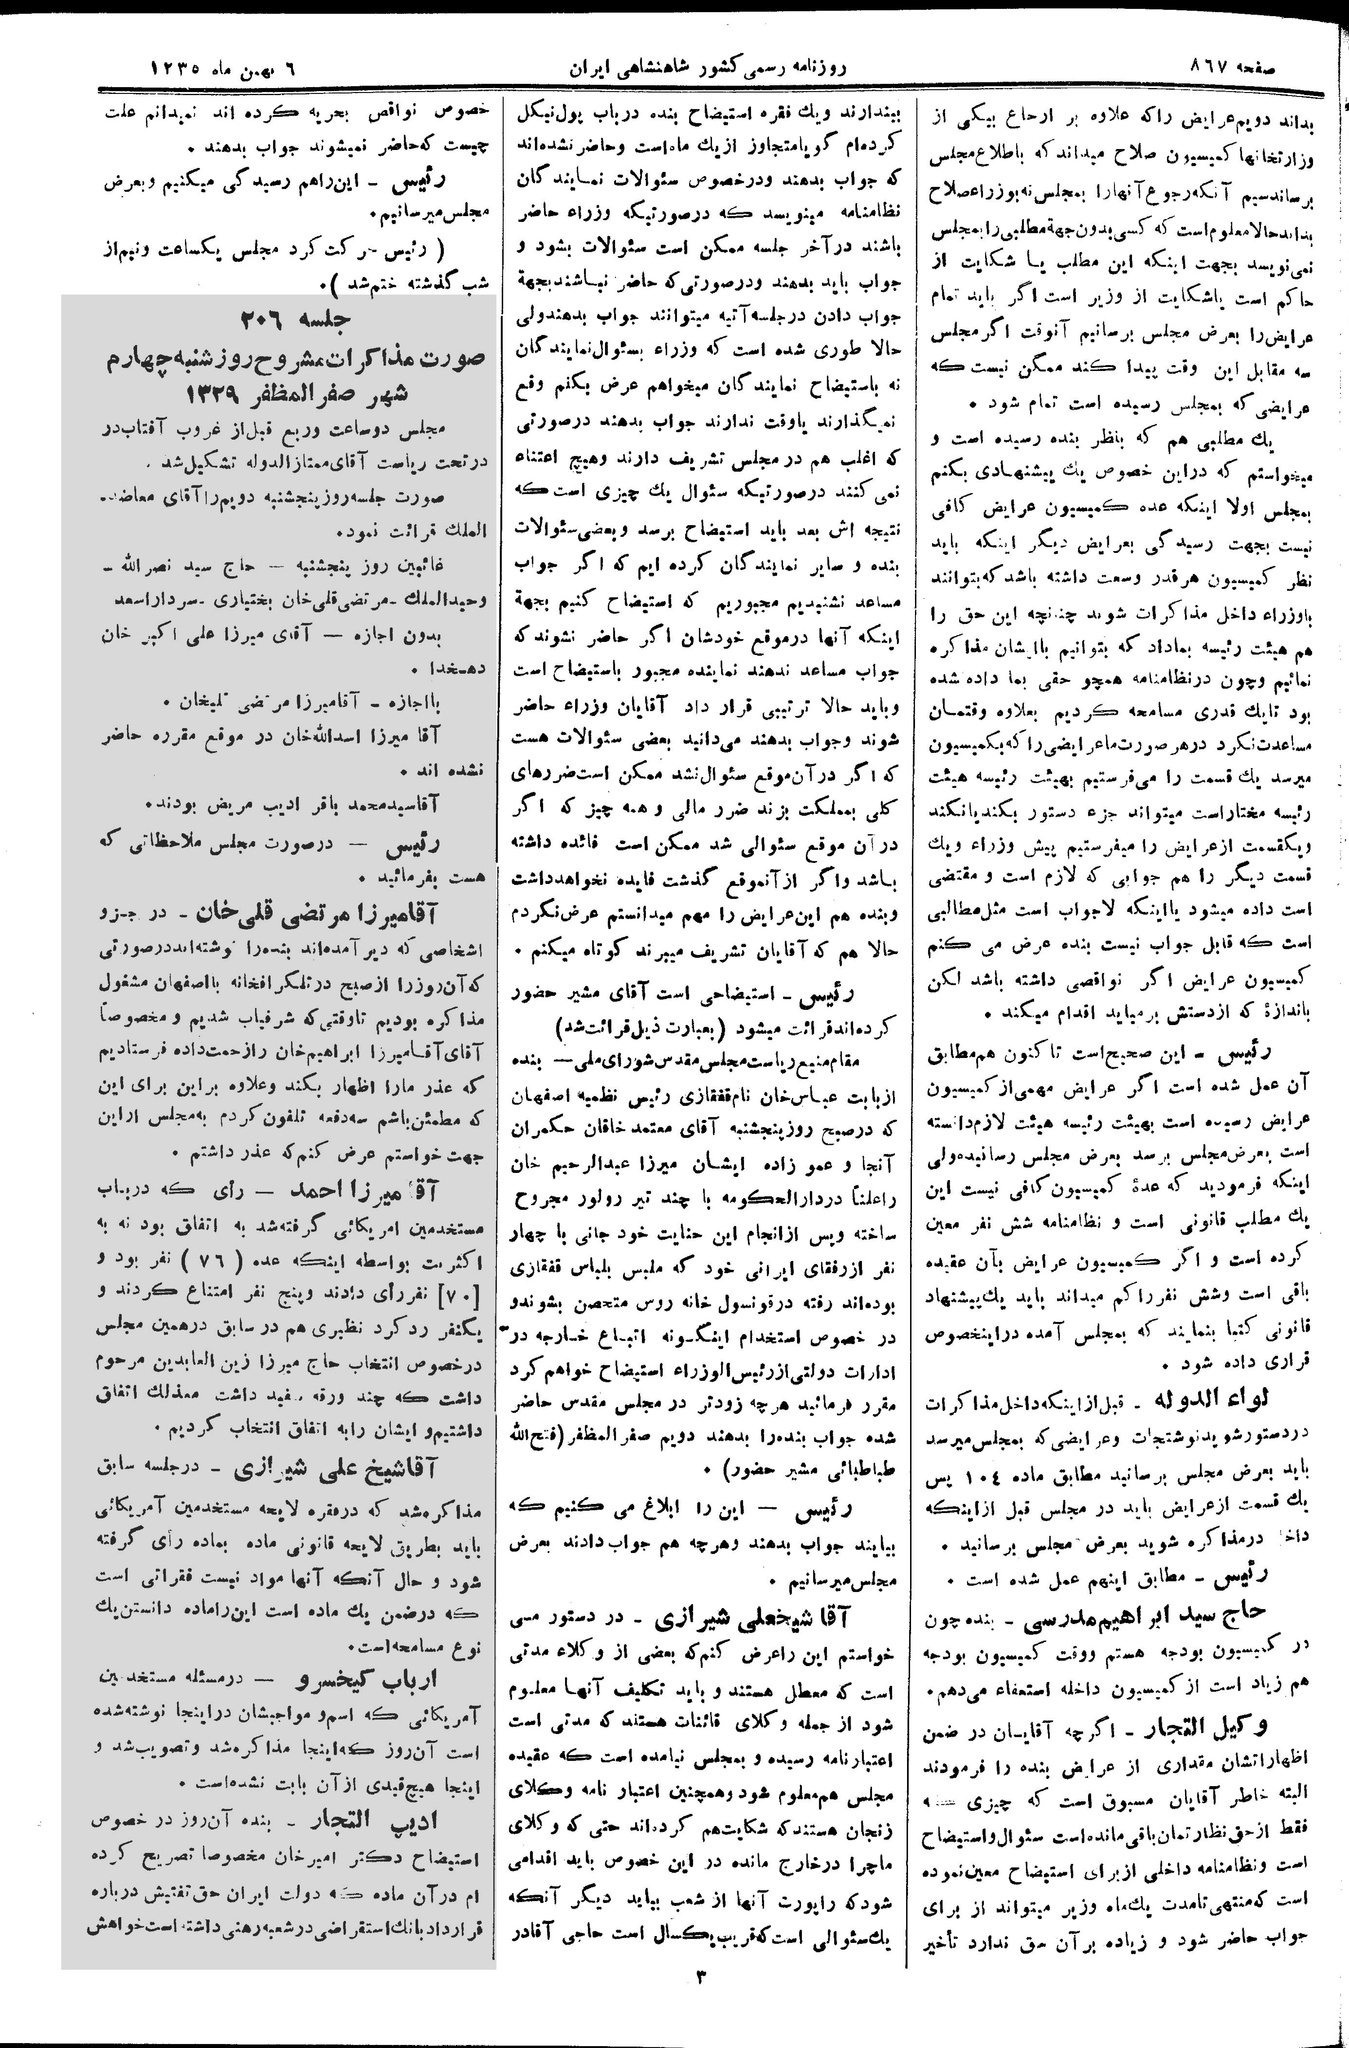 صفحه ۸۶۷
روزنامه رسمی کشور شاهنشاهی ایران
۶ بهمن ماه ۱۲۳۵
بداند دویم عرایض را که علاوه بر ارجاع بیکی از
وزارتخانها کمیسیون صلاح میداند که باطلاع مجلس
برساند سیم آنکه رجوع آنها را بمجلس نه بوزراء صلاح
بداند حالا معلوم است که کسی بدون جهة مطلبی را بمجلس
نمی نویسد بجهت اینکه این مطلب یا شکایت از
حاکم است یا شکایت از وزیر است اگر باید تمام
عرایض را بعرض مجلس برسانیم آنوقت اگر مجلس
سه مقابل این وقت پیدا کند ممکن نیست که
عرایضی که بمجلس رسیده است تمام شود .
یك مطلبی هم که بنظر بنده رسیده است و
میخواستم که در این خصوص یك پیشنهادی بکنم
بمجلس اولا اینکه عده کمیسیون عرایض کافی
نیست بجهت رسیدگی بعرایض دیگر اینکه باید
نظر کمیسیون هر قدر وسعت داشته باشد که بتوانند
باوزراء داخل مذاکرات شوند چنانچه این حق را
هم هیئت رئیسه بماداد که بتوانیم با ایشان مذاکره
نمائیم و چون در نظامنامه همچو حقی بما داده نشده
بود تا یك قدری مسامحه کردیم بعلاوه وقتمان
مساعدت نکرد در هر صورت ما عرایضی را که بکمیسیون
میرسد یك قسمت را می فرستیم بهیئت رئیسه هیئت
رئیسه مختار است میتواند جزء دستور بکند یا نکند
و یکقسمت از عرایض را میفرستیم پیش وزراء و یك
قسمت دیگر را هم جوابی که لازم است و مقتضی
است داده میشود یا اینکه لاجواب است مثل مطالبی
است که قابل جواب نیست بنده عرض می کنم
کمیسیون عرایض اگر نواقصی داشته باشد لکن
باندازهٔ که از دستش برمیاید اقدام میکند .
رئیس ـ این صحیح است تاکنون هم مطابق
آن عمل شده است اگر عرایض مهمی از کمیسیون
عرایض رسیده است بهیئت رئیسه هیئت لازم دانسته
است بعرض مجلس برسد بعرض مجلس رسانیده ولی
اینکه فرمودید که عدهٔ کمیسیون کافی نیست این
یك مطلب قانونی است و نظامنامه شش نفر معین
کرده است و اگر کمیسیون عرایض بآن عقیده
باقی است و شش نفر را کم میداند باید یك پیشنهاد
قانونی کتبا بنمایند که بمجلس آمده در اینخصوص
قراری داده شود .
لواء الدوله ـ قبل از اینکه داخل مذاکرات
در دستور شوید نوشتجات و عرایضی که بمجلس میرسد
باید بعرض مجلس برسانید مطابق ماده ۱۰۴ پس
یك قسمت از عرایض باید در مجلس قبل از اینکه
داخل در مذاکره شوید بعرض مجلس برسانید .
رئیس ـ مطابق اینهم عمل شده است .
حاج سید ابراهیم مدرسی ـ بنده چون
در کمیسیون بودجه هستم و وقت کمیسیون بودجه
هم زیاد است از کمیسیون داخله استعفاء می دهم .
وکیل التجار ـ اگرچه آقایان در ضمن
اظهاراتشان مقداری از عرایض بنده را فرمودند
البته خاطر آقایان مسبوق است که چیزی که
فقط از حق نظارتمان باقی مانده است سئوال و استیضاح
است و نظامنامه داخلی از برای استیضاح معین نموده
است که منتهی تا مدت یك ماه وزیر میتواند از برای
جواب حاضر شود و زیاده بر آن حق ندارد تأخیر
بیندازند و یك فقره استیضاح بنده در باب پول نیکل
کرده ام گویا متجاوز از یك ماه است و حاضر نشده اند
که جواب بدهند و در خصوص سئوالات نمایندگان
نظامنامه مینویسد که در صورتیکه وزراء حاضر
باشند در آخر جلسه ممکن است سئوالات بشود و
جواب باید بدهند و در صورتی که حاضر نباشند بجهة
جواب دادن در جلسه آتیه میتوانند جواب بدهند ولی
حالا طوری شده است که وزراء بسئوال نمایندگان
نه باستیضاح نمایندگان میخواهم عرض بکنم وقع
نمیگذارند یا وقت ندارند جواب بدهند در صورتی
که اغلب هم در مجلس تشریف دارند و هیچ اعتناء
نمی کنند در صورتیکه سئوال یك چیزی است که
نتیجه اش بعد باید استیضاح برسد و بعضی سئوالات
بنده و سایر نمایندگان کرده ایم که اگر جواب
مساعد نشنیدیم مجبوریم که استیضاح کنیم بجهة
اینکه آنها در موقع خودشان اگر حاضر نشوند که
جواب مساعد ندهند نماینده مجبور باستیضاح است
و باید حالا ترتیبی قرار داد آقایان وزراء حاضر
شوند و جواب بدهند می دانید بعضی سئوالات هست
که اگر در آن موقع سئوال نشد ممکن است ضررهای
کلی بمملکت بزند ضرر مالی و همه چیز که اگر
در آن موقع سئوالی شد ممکن است فائده داشته
باشد و اگر از آنموقع گذشت فایده نخواهد داشت
و بنده هم این عرایض را مهم میدانستم عرض نکردم
حالا هم که آقایان تشریف میبرند کوتاه میکنم .
رئیس ـ استیضاحی است آقای مشیر حضور
کرده اند قرائت میشود (بعبارت ذیل قرائت شد)
مقام منیع ریاست مجلس مقدس شورای ملی ـ بنده
از بابت عباس خان نام قفقازی رئیس نظمیه اصفهان
که در صبح روز پنجشنبه آقای معتمد خاقان حکمران
آنجا و عمو زاده ایشان میرزا عبدالرحیم خان
را علناً در دارالحکومه با چند تیر رولور مجروح
ساخته و پس از انجام این جنایت خود جانی با چهار
نفر از رفقای ایرانی خود که ملبس بلباس قفقازی
بوده اند رفته در قونسول خانه روس متحصن بشوند و
در خصوص استخدام اینگونه اتباع خارجه در
ادارات دولتی از رئیس الوزراء استیضاح خواهم کرد
مقرر فرمائید هرچه زودتر در مجلس مقدس حاضر
شده جواب بنده را بدهند دویم صفر المظفر (فتح الله
طباطبائی مشیر حضور) .
رئیس ـ این را ابلاغ می کنیم که
بیایند جواب بدهند و هرچه هم جواب دادند بعرض
مجلس میرسانیم .
آقا شیخعلی شیرازی ـ در دستور می
خواستم این را عرض کنم که بعضی از وکلاء مدتی
است که معطل هستند و باید تکلیف آنها معلوم
شود از جمله وکلای قائنات هستند که مدتی است
اعتبارنامه رسیده و بمجلس نیامده است که عقیده
مجلس هم معلوم شود و همچنین اعتبار نامه وکلای
زنجان هستند که شکایت هم کرده اند حتی که وکلای
ماچرا در خارج مانده در این خصوص باید اقدامی
شود که راپورت آنها از شعب بیاید دیگر آنکه
یك سئوالی است که قریب یکسال است حاجی آقا در
خصوص نواقص بحریه کرده اند نمیدانم علت
چیست که حاضر نمیشوند جواب بدهند .
رئیس ـ این را هم رسیدگی میکنیم و بعرض
مجلس میرسانیم.
( رئیس حرکت کرد مجلس یکساعت و نیم از
شب گذشته ختم شد ) .
جلسه ۲۰۶
صورت مذاکرات مشروح روز شنبه چهارم
شهر صفر المظفر ۱۳۲۹
مجلس دو ساعت و ربع قبل از غروب آفتاب در
در تحت ریاست آقای ممتاز الدوله تشکیل شد .
صورت جلسه روز پنجشنبه دویم را آقای معاضد
الملك قرائت نمود.
غائبین روز پنجشنبه ـ حاج سید نصر الله ـ
وحید الملك ـ مرتضی قلی خان بختیاری ـ سردار اسعد
بدون اجازه ـ آقای میرزا علی اکبر خان
دهخدا .
با اجازه ـ آقا میرزا مرتضی قلیخان .
آقا میرزا اسدالله خان در موقع مقرره حاضر
نشده اند .
آقا سید محمد باقر ادیب مریض بودند.
رئیس ـ در صورت مجلس ملاحظاتی که
هست بفرمائید .
آقا میرزا مرتضی قلی خان ـ در جزو
اشخاصی که دیر آمده اند بنده را نوشته اند در صورتی
که آن روز را از صبح در تلگرافخانه با اصفهان مشغول
مذاکره بودیم تا وقتی که شرفیاب شدیم و مخصوصاً
آقای آقا میرزا ابراهیم خان را زحمت داده فرستادیم
که عذر ما را اظهار بکند و علاوه بر این برای این
که مطمئن باشم سه دفعه تلفون کردم به مجلس از این
جهت خواستم عرض کنم که عذر داشتم .
آقا میرزا احمد ـ رأی که در باب
مستخدمین امریکائی گرفته شد به اتفاق بود نه به
اکثریت بواسطه اینکه عده ( ۷۶ ) نفر بود و
[۷۰] نفر رأی دادند و پنج نفر امتناع کردند و
یکنفر رد کرد نظیری هم در سابق در همین مجلس
در خصوص انتخاب حاج میرزا زین العابدین مرحوم
داشت که چند ورقه سفید داشت معذلك اتفاق
داشتیم و ایشان را به اتفاق انتخاب کردیم .
آقا شیخ علی شیرازی ـ در جلسه سابق
مذاکره شد که در فقره لایحه مستخدمین آمریکائی
باید بطریق لایحه قانونی ماده بماده رأی گرفته
شود و حال آنکه آنها مواد نیست فقراتی است
که در ضمن یك ماده است این را ماده دانستن یك
نوع مسامحه است.
ارباب کیخسرو ـ در مسئله مستخدمین
آمریکائی که اسم و مواجبشان در اینجا نوشته شده
است آن روز که اینجا مذاکره شد و تصویب شد و
اینجا هیچ قیدی از آن بابت نشده است .
ادیب التجار ـ بنده آن روز در خصوص
استیضاح دکتر امیر خان مخصوصا تصریح کرده
ام در آن ماده که دولت ایران حق تفتیش در باره
قرارداد بانك استقراضی در شعبه رهنی داشته است خواهش
۳